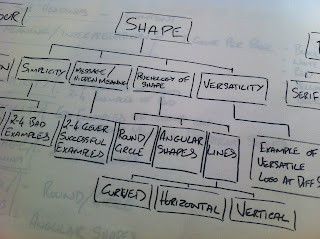 OUR
SHAPE
SIMPLICITY
MESSAGE/
HIDDEN MEANING
PSYCHOLOGY OF
SHAPE
VERSATILITY
SERIF
2-4 BAD
EXAMPLES
2-4 CLEVER
SUCCESSFUL
EXAMPLES
ROUND/
CIRCLE
ANGULAR
SHAPES
LINES
EXAMPLE OF
VERSATILE
LOGO AT DIFF S
CURVED
HORIZONTAL
VERTICAL
ANGULAR SHAPES